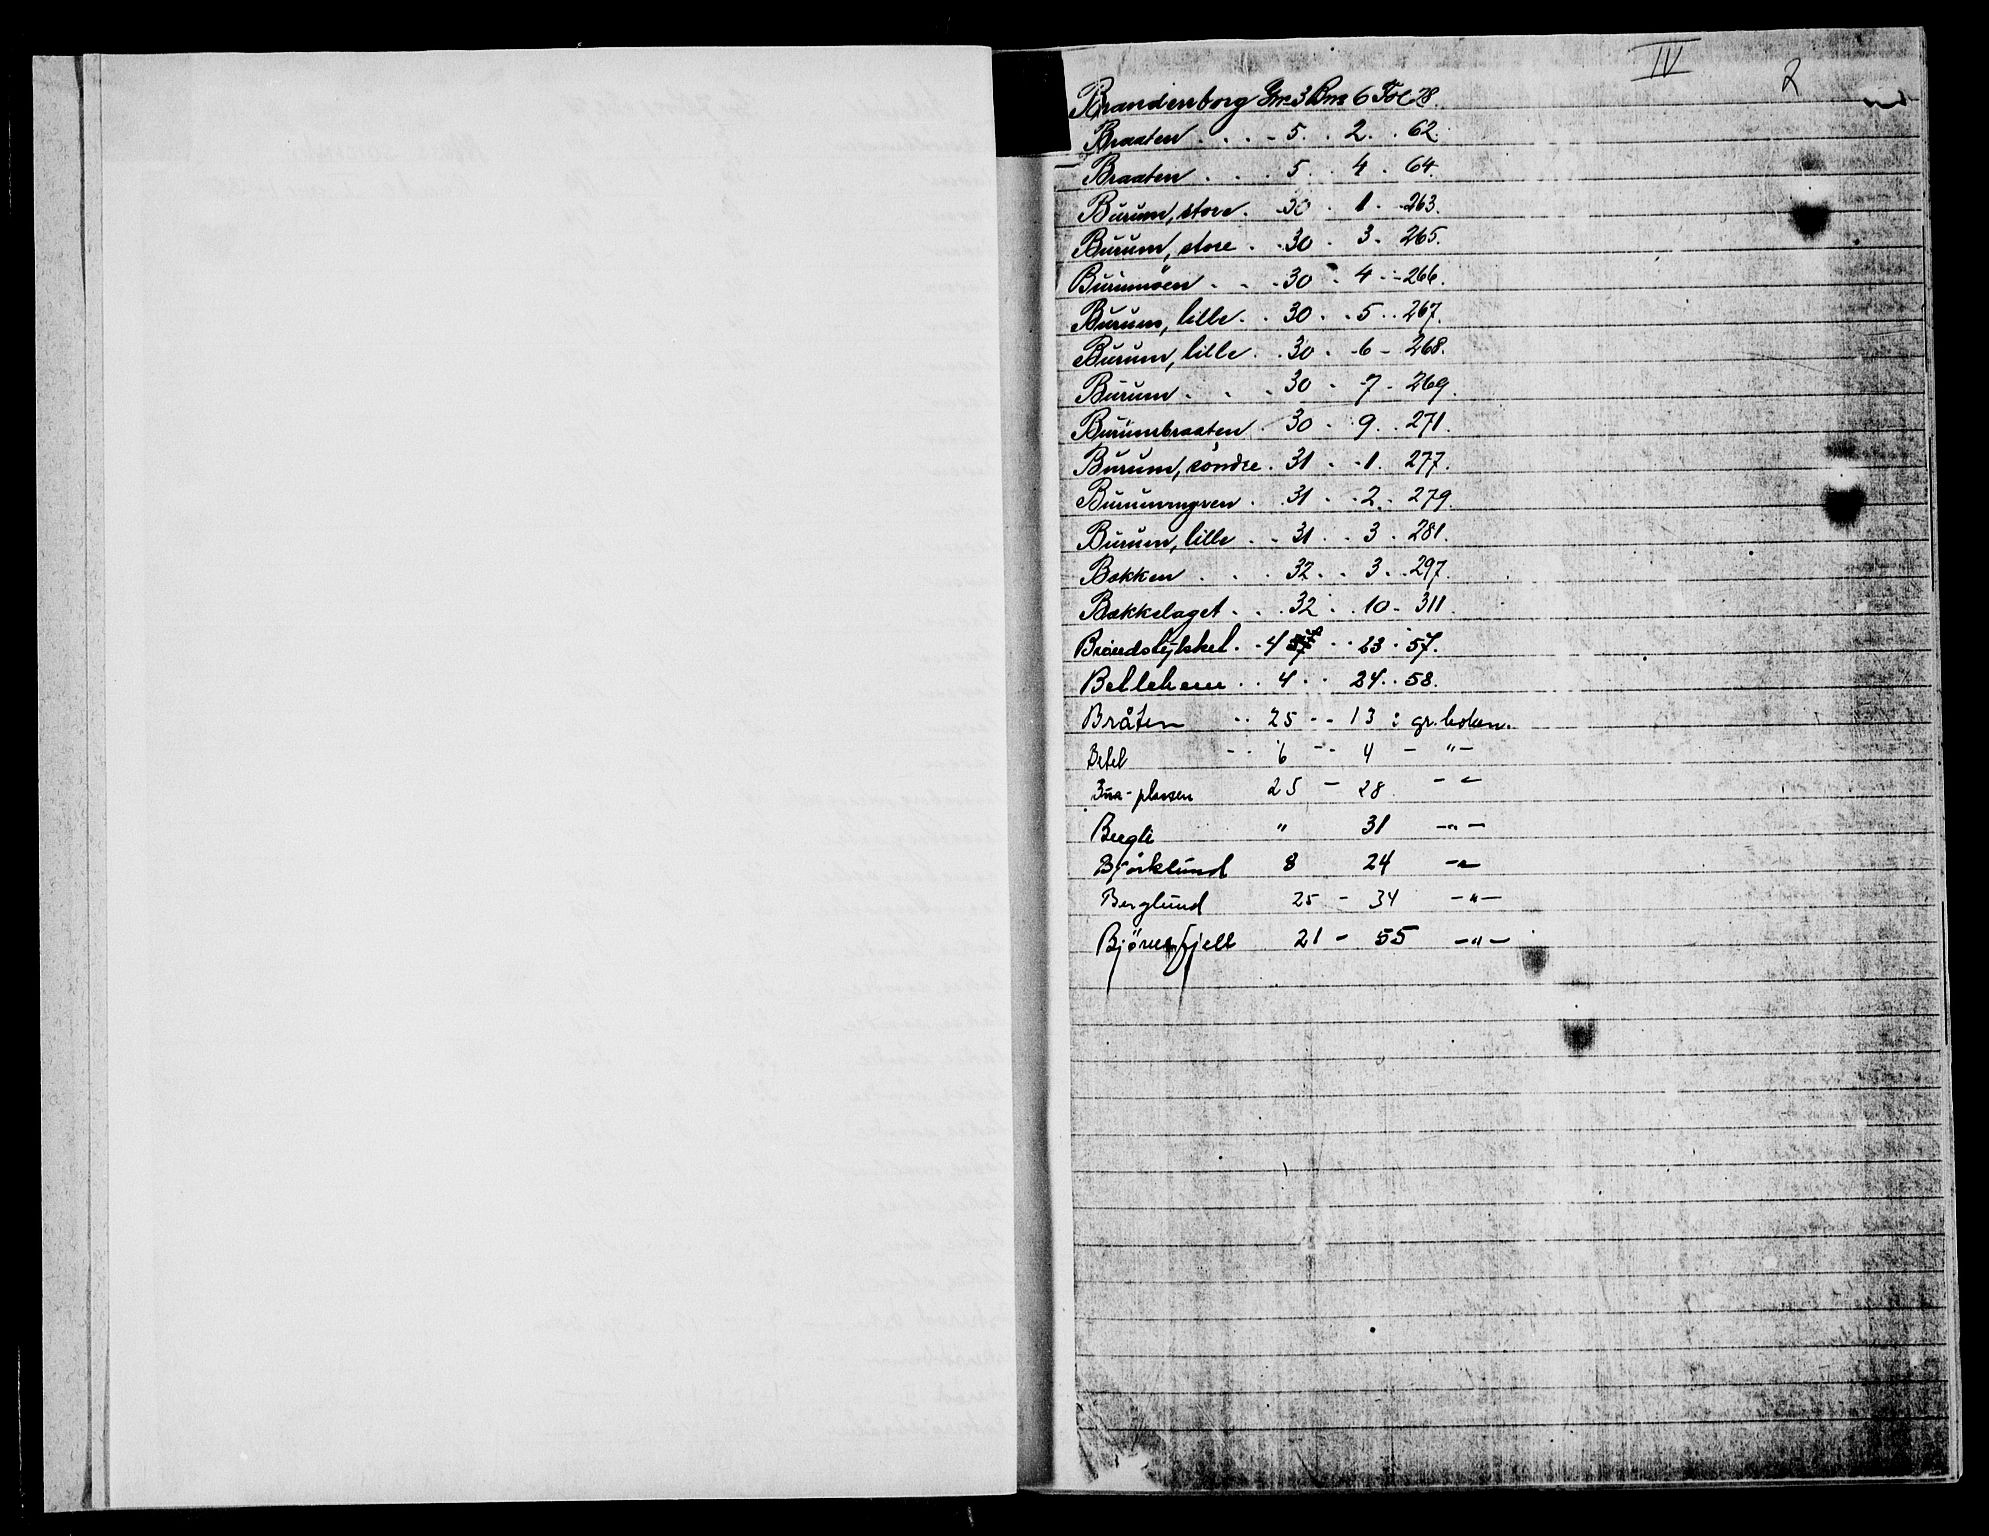 IV
2
Brandenborg Gnr. 3 Bnr. 6 Fol 28.
Braaten . . . - 5. . 2. . 62.
Braaten . . . 5. . 4. . 64.
Burum, store. . 30 . 1. . 263.
Burum, store . . 30 . 3. 265.
Burumöen . . . 30 . 4 . 266.
Burum, lille. . 30. . 5. . 267.
Burum, lille. . 30. . 6 - 268.
Burum . . . 30 . 7 - 269.
Burumbraaten 30 . 9. . 271.
Burum, söndre . 31 . . 1. 277.
Burum, lille . . 31 . . 3 . 281.
Bakken . . . 32. . 3. . 297.
Bækkelaget . . . 32 . . 10 . 311.
4 . . 23 . 57.
Betlehem . . 4 . . 24. . 58.
Bråten . . 25 - - 13 : gr. boken.
Betel - - 6 - - 4 - " -
25 - 28 - "
Bergli " 31 - " -
Björklund 8 24 - "
Berglund 25 - 34 - " -
21 - 55 - " -